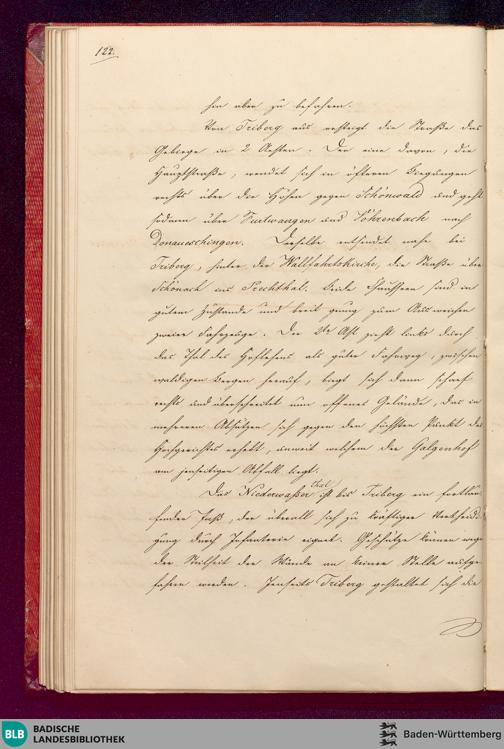 122.
hin aber zu befahren.
Von Triberg aus ersteigt die Straße das
Gebirge in 2 Aesten. Der eine davon, die
Hauptstraße, wendet sich in öftern Biegungen
rechts über die Höhen gegen Schönwald und geht
sodann über Furtwangen und Vöhrenbach nach
Donaueschingen. Derselbe entsendet nahe bei
Triberg, hinter der Wallfahrtskirche, die Straße über
Schönach ins Prechthal. Beide Chausseen sind in
gutem Zustande und breit genug zum Ausweichen
zweier Fahrzeuge. Der 2te Ast zieht links durch
das Thal des als guter Fahrweg, zwischen
waldigen Bergen herauf, biegt sich dann scharf
rechts und überschreitet nun offenes Gelände, das in
mehreren Absätzen sich gegen den höchsten Punkt des
Hochgerichts erhebt, unweit welchem der Galgenhof
am jenseitigen Abfall liegt.
Das Niederwaßer Thal ist bis Triberg ein fortlau
fender Paß, der überall sich zu kräftiger Vertheidi
gung durch Infanterie eignet. Geschütze können wegen
der Steilheit der Wände an keiner Stelle aufge
fahren werden. Jenseits Triberg gestaltet sich die
BLB BADISCHE
LANDESBIBLIOTHEK
Baden-Württemberg